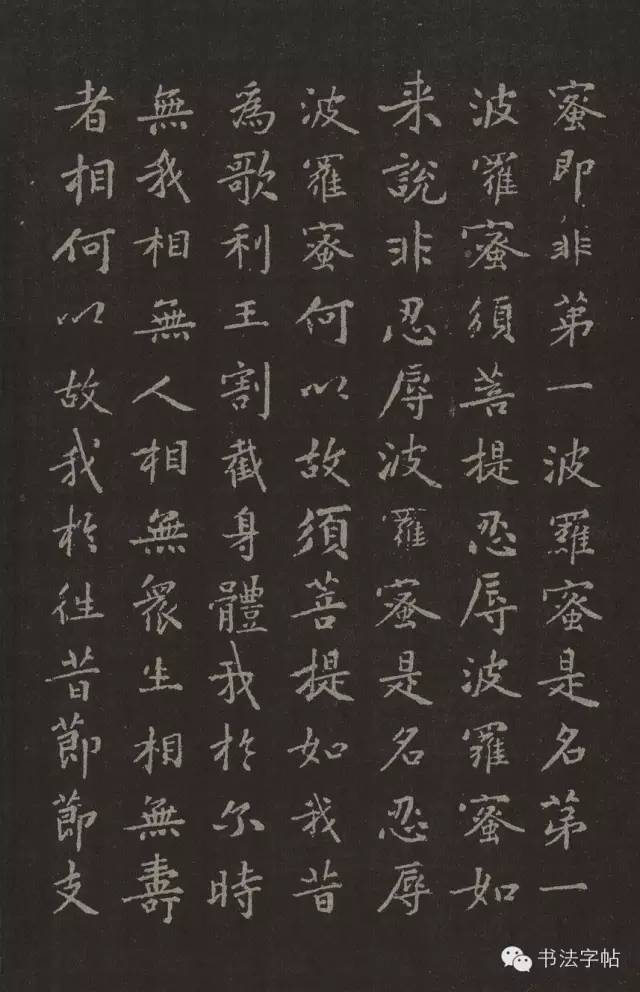 蜜即非苐一波羅蜜是名苐一
波羅蜜須菩提忍辱波羅蜜如
来說非忍辱波羅蜜是名忍辱
波羅蜜何以故須菩提如我昔
爲歌利王割截身體我於尔時
無我相無人相無衆生相無壽
者相何以故我於往昔節節支
书法字帖